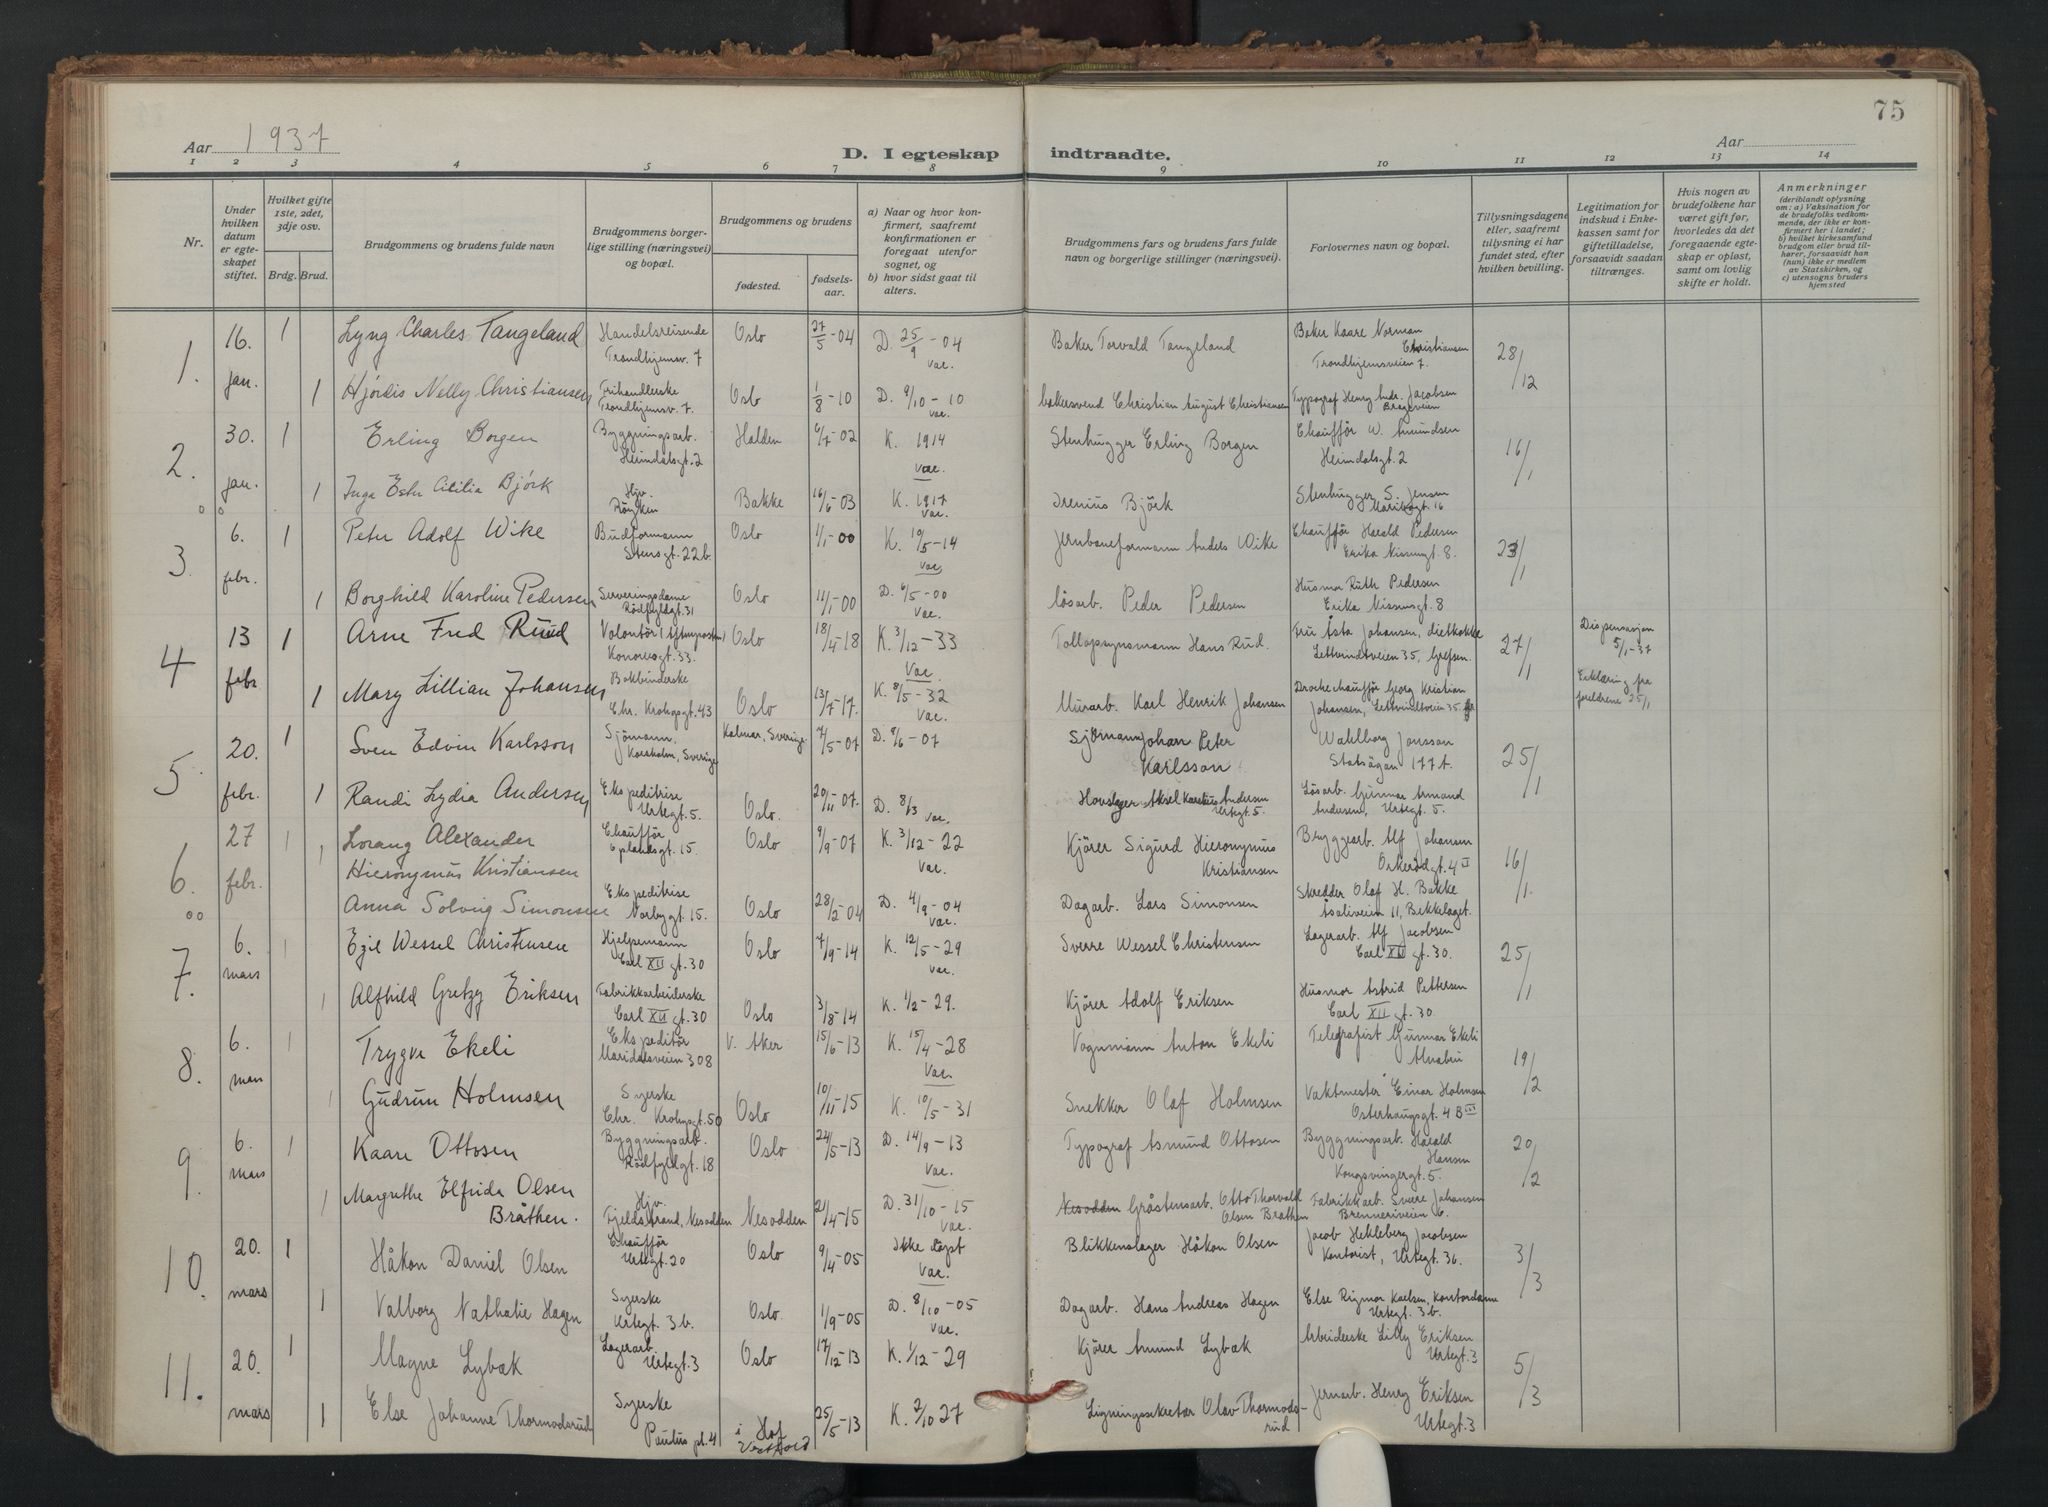 75
Aar 1937
D. I egteskap indtraadte.
Aar
1 2 3 4 5 6 7 8 9 10 11 12 13 14
Nr.
Under hvilken datum er egteskapet stiftet.
Hvilket gifte 1ste, 2det, 3dje osv.
Brdg. Brud.
Brudgommens og brudens fulde navn
Brudgommens borgerlige stilling (næringsvei) og bopæl.
Brudgommens og brudens
fødested.
fødselsaar.
a) Naar og hvor konfirmert, saafremt konfirmationen er foregaat utenfor sognet, og
b) hvor sidst gaat til alters.
Brudgommens fars og brudens fars fulde navn og borgerlige stillinger (næringsvei).
Forlovernes navn og bopæl.
Tillysningsdagene eller, saafremt tillysning ei har fundet sted, efter hvilken bevilling.
Legitimation for indskud i Enkekassen samt for giftetilladelse, forsaavidt saadan tiltrænges.
Hvis nogen av brudefolkene har været gift før, hvorledes da det foregaaende egteskap er opløst, samt om lovlig skifte er holdt.
Anmerkninger (deriblandt oplysning om: a) Vaksination for de brudefolks vedkommende, der ikke er konfirmert her i landet; b) hvilket kirkesamfund brudgom eller brud tilhører, forsaavidt han (hun) ikke er medlem av Statskirken, og c) utensogns bruders hjemsted
1. 16. jan. 1 Lyng Charles Tangeland Handelsreisende Trondhjemsv. 7 Oslo 27/5-04 D. 25/9-04 Vac. Baker Torvald Tangeland Baker Kaare Norman Christiansen Trondhjemsveien 7. 28/12
1 Hjördis Nelly Christiansen Trondhjemsv. 7. Oslo 1/8-10 D. 9/10-10 vac. bakersvend Christian August Christiansen Typograf Henry Andr. Jacobsen
2. 30. jan. 1 Erling Borgen Byggningsarb. Heimdalsgt. 2 Halden 6/7-02 K. 1914 Vac. Stenhugger Erling Borgen Chaufför W. Amundsen Heimdalsgt. 2 16/1
1 Inga Ester Cecilia Björk Hjv. Röyken Bakke 16/6-03 K. 1917 Vac. Irenius Björk Stenhugger S. Jensen
3. 6. febr. 1 Peter Adolf Wike Budformann Stensgt. 22b. Oslo 1/1-00 K. 10/5-14 vac. Jernbaneformann Anders Wike Chaufför Harald Pedersen Erika Nissensgt. 8. 23/1
1 Borghild Karoline Pedersen Serveringsdame Rödfyldgt. 31 Oslo 11/1-00 D. 6/5-00 Vac. lösarb. Peder Pedersen Husmor Ruth Pedersen Erika Nissensgt. 8
4 13 febr 1 Arne Fred Ruud Volontör (Aftenposten) Oslo 18/4-18 K. 3/12-33 Vac. Tollopsynsmann Hans Rud. Fru Åsta Johansen, dietkokke Lettvindtveien 35, Grefsen. 27/1 Dispensasjon 5/1-37
1 Mary Lillian Johansen Bokbinderske Chr. Krohgsgt. 43 Oslo 13/7-17. K. 8/5-32 Vac. Murarb. Karl Henrik Johansen Droschechaufför Georg Kristian Johansen, Lettvindtveien 35. Erklæring fra foreldrene 25/1
5 20. febr. 1 Sven Edvin Karlsson Sjömann, Sverige Kalmar, Sverige 7/5-07 D. 9/6-07 Sjömann Johan Peter Karlsson Wahlborg Jonsson 25/1
1 Randi Lydia Andersen Ekspeditrise Urtegt. 5. Oslo. 20/11-07. D. 8/3 vac. Hovslager Aksel Andersen Urtegt. 5. Lösarb. Gunnar Armand Andersen, Urtegt. 5.
6. 27 febr. 1 Lorang Alexander Hieronymus Kristiansen Chaufför Oslo 9/9-07 K. 3/12-22 Vac. Kjörer Sigurd Hieronymus Kristiansen Bryggearb. Alf Johansen 16/1.
1 Anna Solveig Simonsen Ekspeditrise Norbygt. 15. Oslo 28/2-04 D. 4/9-04 vac. Dagarb. Lars Simonsen Skredder Olaf H. Bakke Åsaliveien 11, Bekkelaget.
7. 6. mars 1 Egil Wessel Christensen Hjelpemann Carl XII gt. 30 Oslo 7/9-14 K. 12/5-29 vac. Sverre Wessel Christensen Lagerarb. Alf Jacobsen Carl XII gt. 30. 25/1
1 Alfhild Gretzy Eriksen Fabrikkarbeiderske Carl XII gt. 30 Oslo 3/8-14 K. 1/2-29. Kjörer Adolf Eriksen Husmor Astrid Pettersen Carl XII gt. 30.
8. 6. mars 1 Trygve Ekeli Ekspeditör Maridalsveien 308 V. Aker 15/6-13 K. 15/4-28 Vac. Vognmann Anton Ekeli Telegrafist Gunnar Ekeli Alnabru 19/2
1 Gudrun Holmsen Syerske Chr. Krohgsgt. 50 Oslo 10/11-15 K. 10/5-31 Snekker Olaf Holmsen Vaktmester Einar Holmsen Osterhausgt. 4 B III
9. 6. mars 1 Kaare Ottosen Byggningsarb. Rödfyldgt. 18 Oslo 24/5-13 D. 14/9-13 Vac. Typograf Asmund Ottosen Byggningsarb. Harald Hansen Kongsvingergt. 5. 20/2
1 Margrethe Elfrida Olsen Bråthen. Hjv. Fjeldstrand, Nesodden Nesodden 21/4-15 D. 31/10-15 Vac. Nesodden Gråstensarb. Otto Thorvald Olsen Bråthen Fabrikkarb. Sverre Johansen Brenneriveien 6.
10. 20. mars 1 Håkon Daniel Olsen Chaufför Urtegt. 20 Oslo 9/4-05 Ikke döpt Vac. Blikkenslager Håkon Olsen Jacob Hekleberg Jacobsen Kontorist, Urtegt. 36. 3/3
1 Valborg Nathalie Hagen Syerske Urtegt. 3b. Oslo 1/9-05 D. 8/10-05 vac. Dagarb. Hans Andreas Hagen Else Rigmor Karlsen, kontordame Urtegt. 3 b.
11. 20. mars 1 Magne Lybæk Lagerarb. Urtegt. 3 Oslo 17/12-13 K. 1/12-29 Kjörer Amund Lybæk Arbeiderske Lilly Eriksen Urtegt. 3 5/3
1 Else Johanne Thormodsrud Syerske Paulus pl. 4 i Hof Vestfold 25/5-13 K. 2/10 27 Ligningssekretær Olav Thormodsrud Jernarb. Henry Eriksen Urtegt. 3